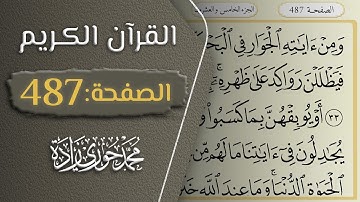 القرآن الكريم
الصفحة:487
محمد حوري زادة
الصفحة 487
الجزء الخامس والعشرو
وَمِنْ ءَايَٰتِهِ ٱلْجَوَارِ فِى ٱلْبَحْ
فَيَظْلَلْنَ رَوَاكِدَ عَلَىٰ ظَهْرِهِۦٓ
٣٣ أَوْ يُوبِقْهُنَّ بِمَا كَسَبُوا۟
يُجَٰدِلُونَ فِىٓ ءَايَٰتِنَا مَا لَهُم مِّن
ٱلْحَيَوٰةِ ٱلدُّنْيَا وَمَا عِندَ ٱللَّهِ خَيْ